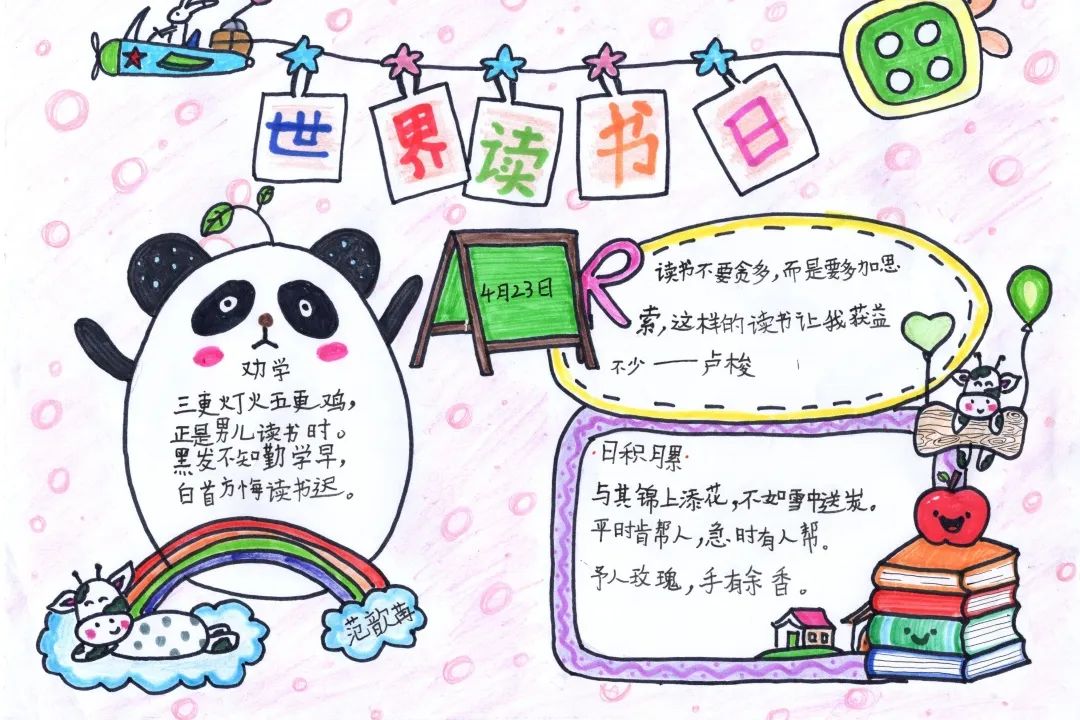 世界读书日
4月23日
读书不要贪多，而是要多加思
索，这样的读书让我获益
不少——卢梭
劝学
三更灯火五更鸡，
正是男儿读书时。
黑发不知勤学早，
白首方悔读书迟。
日积月累
与其锦上添花，不如雪中送炭。
平时肯帮人，急时有人帮。
予人玫瑰，手有余香。
范歆苒